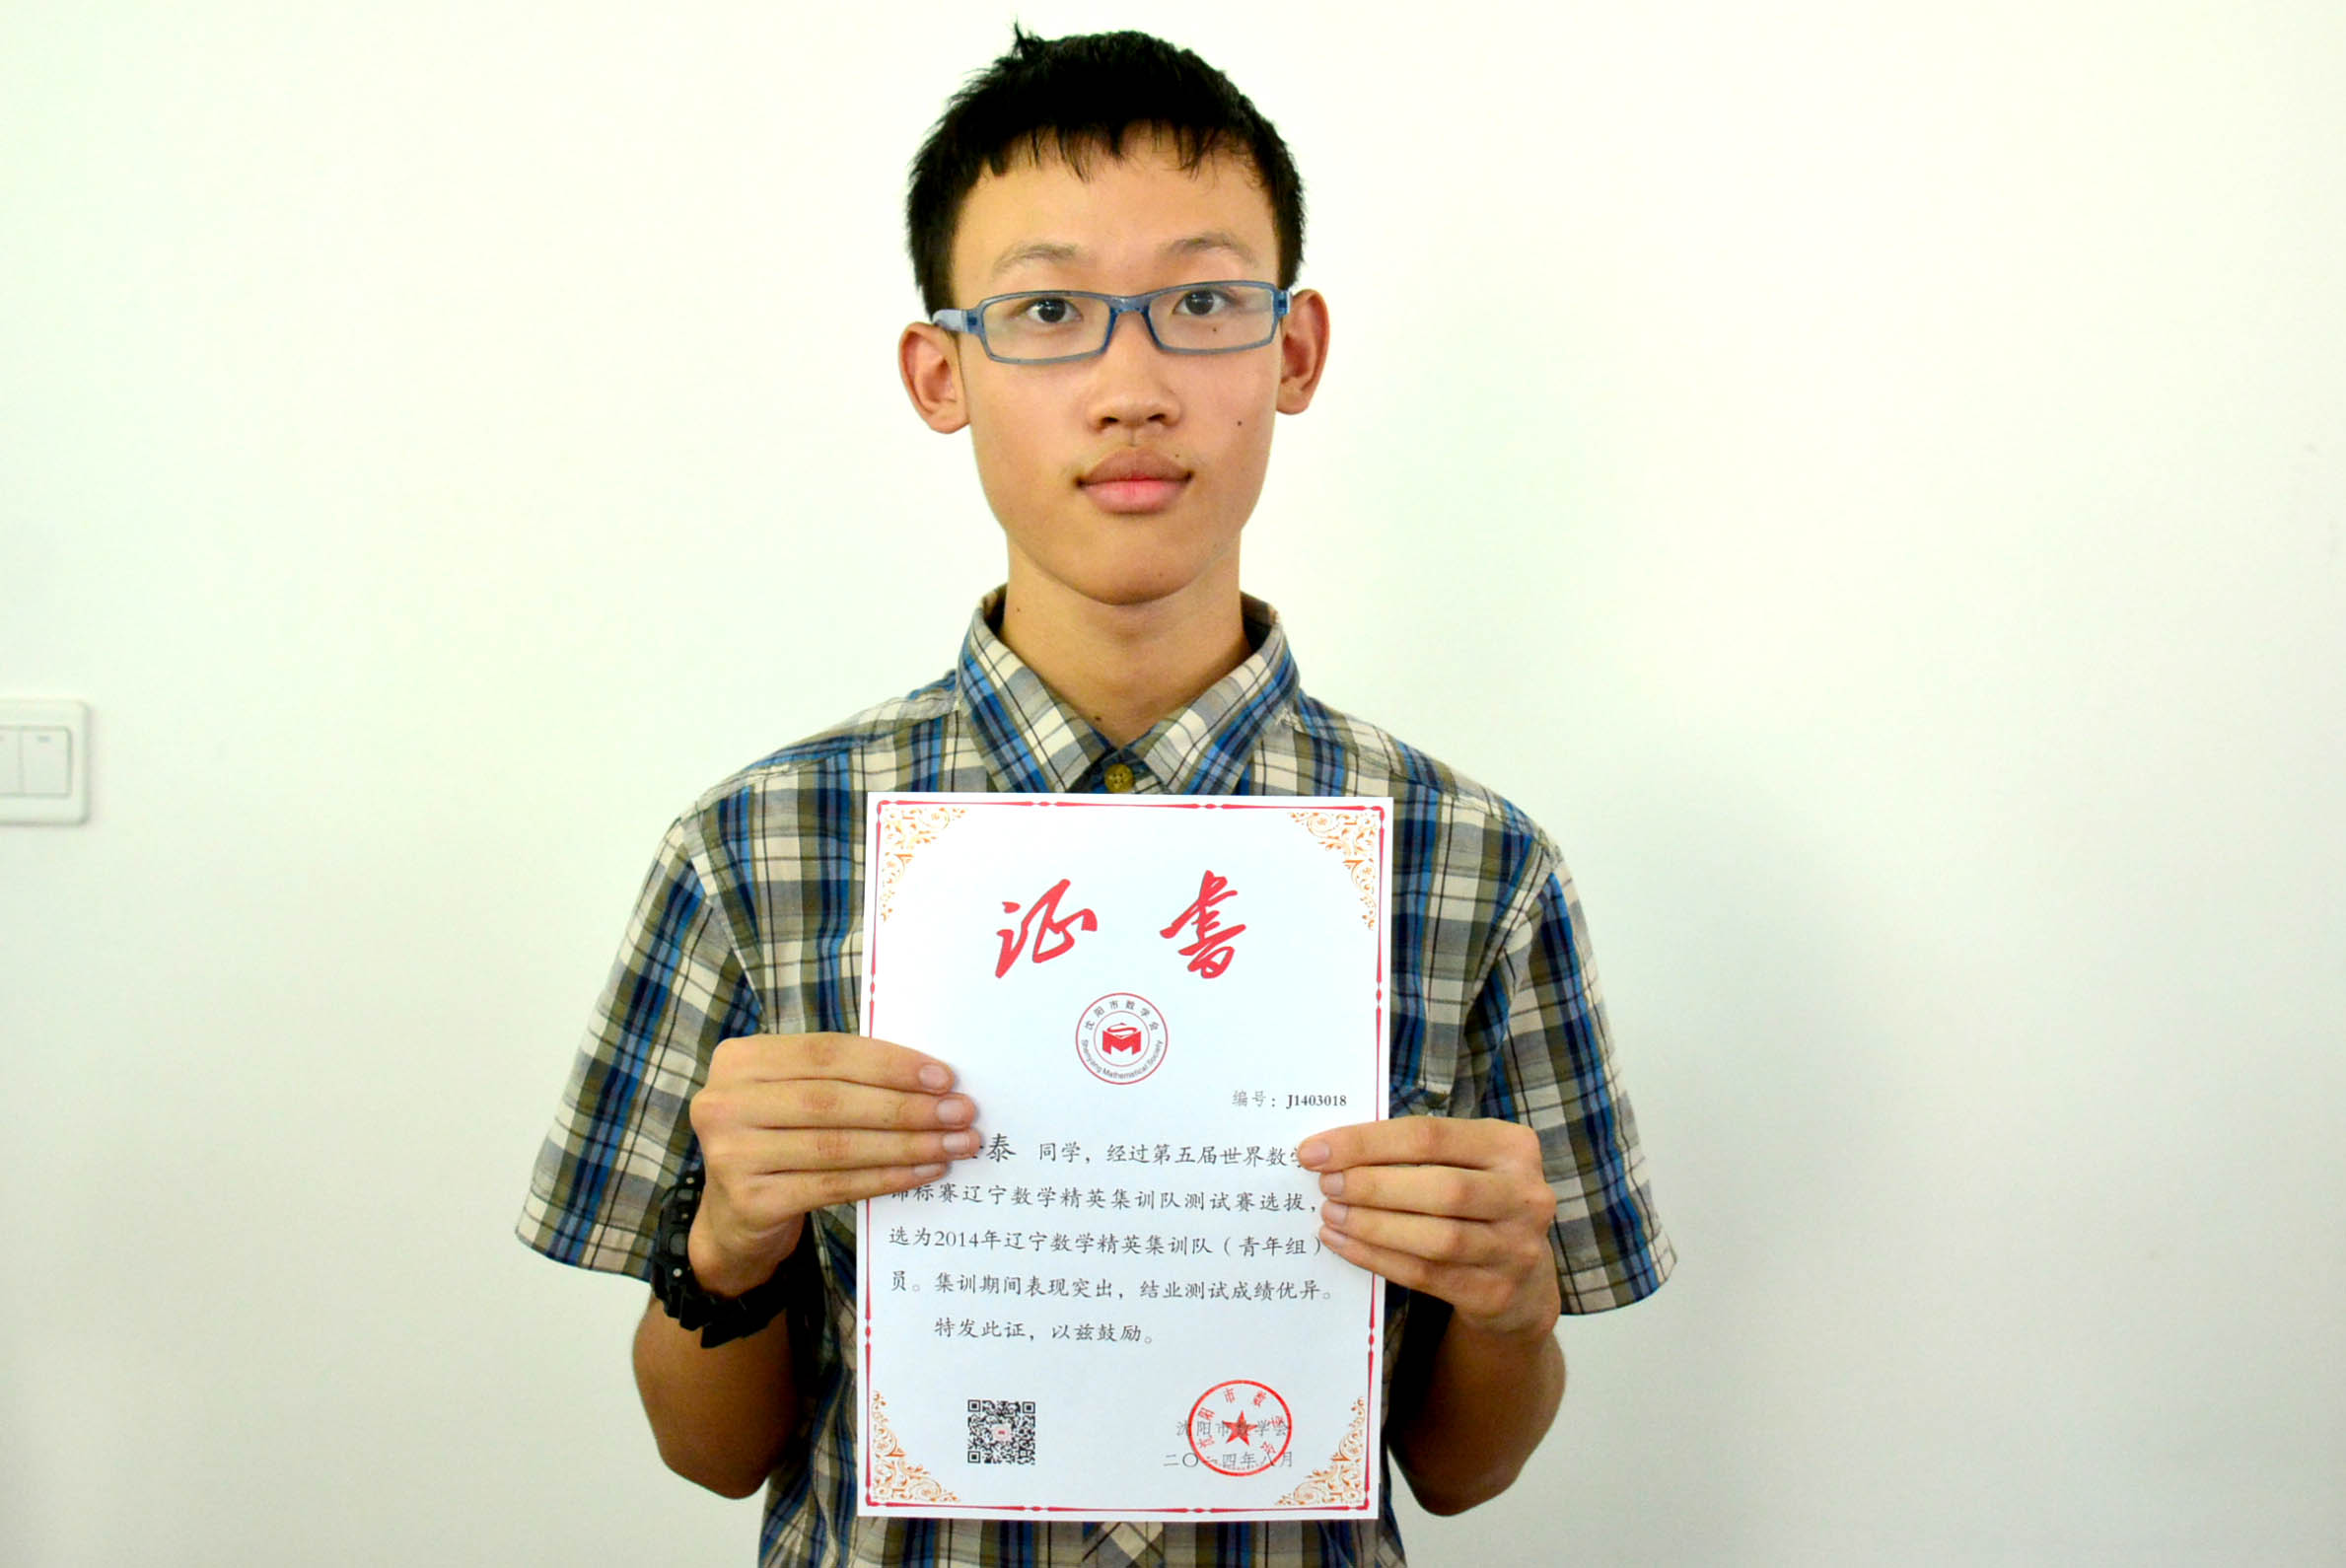 证 书
沈阳市数学会
Shenyang Mathematical Society
编号：J1403018
泰 同学，经过第五届世界数学
锦标赛辽宁数学精英集训队测试赛选拔，
选为2014年辽宁数学精英集训队（青年组）
员。集训期间表现突出，结业测试成绩优异。
特发此证，以兹鼓励。
沈阳市数学会
二〇一四年八月